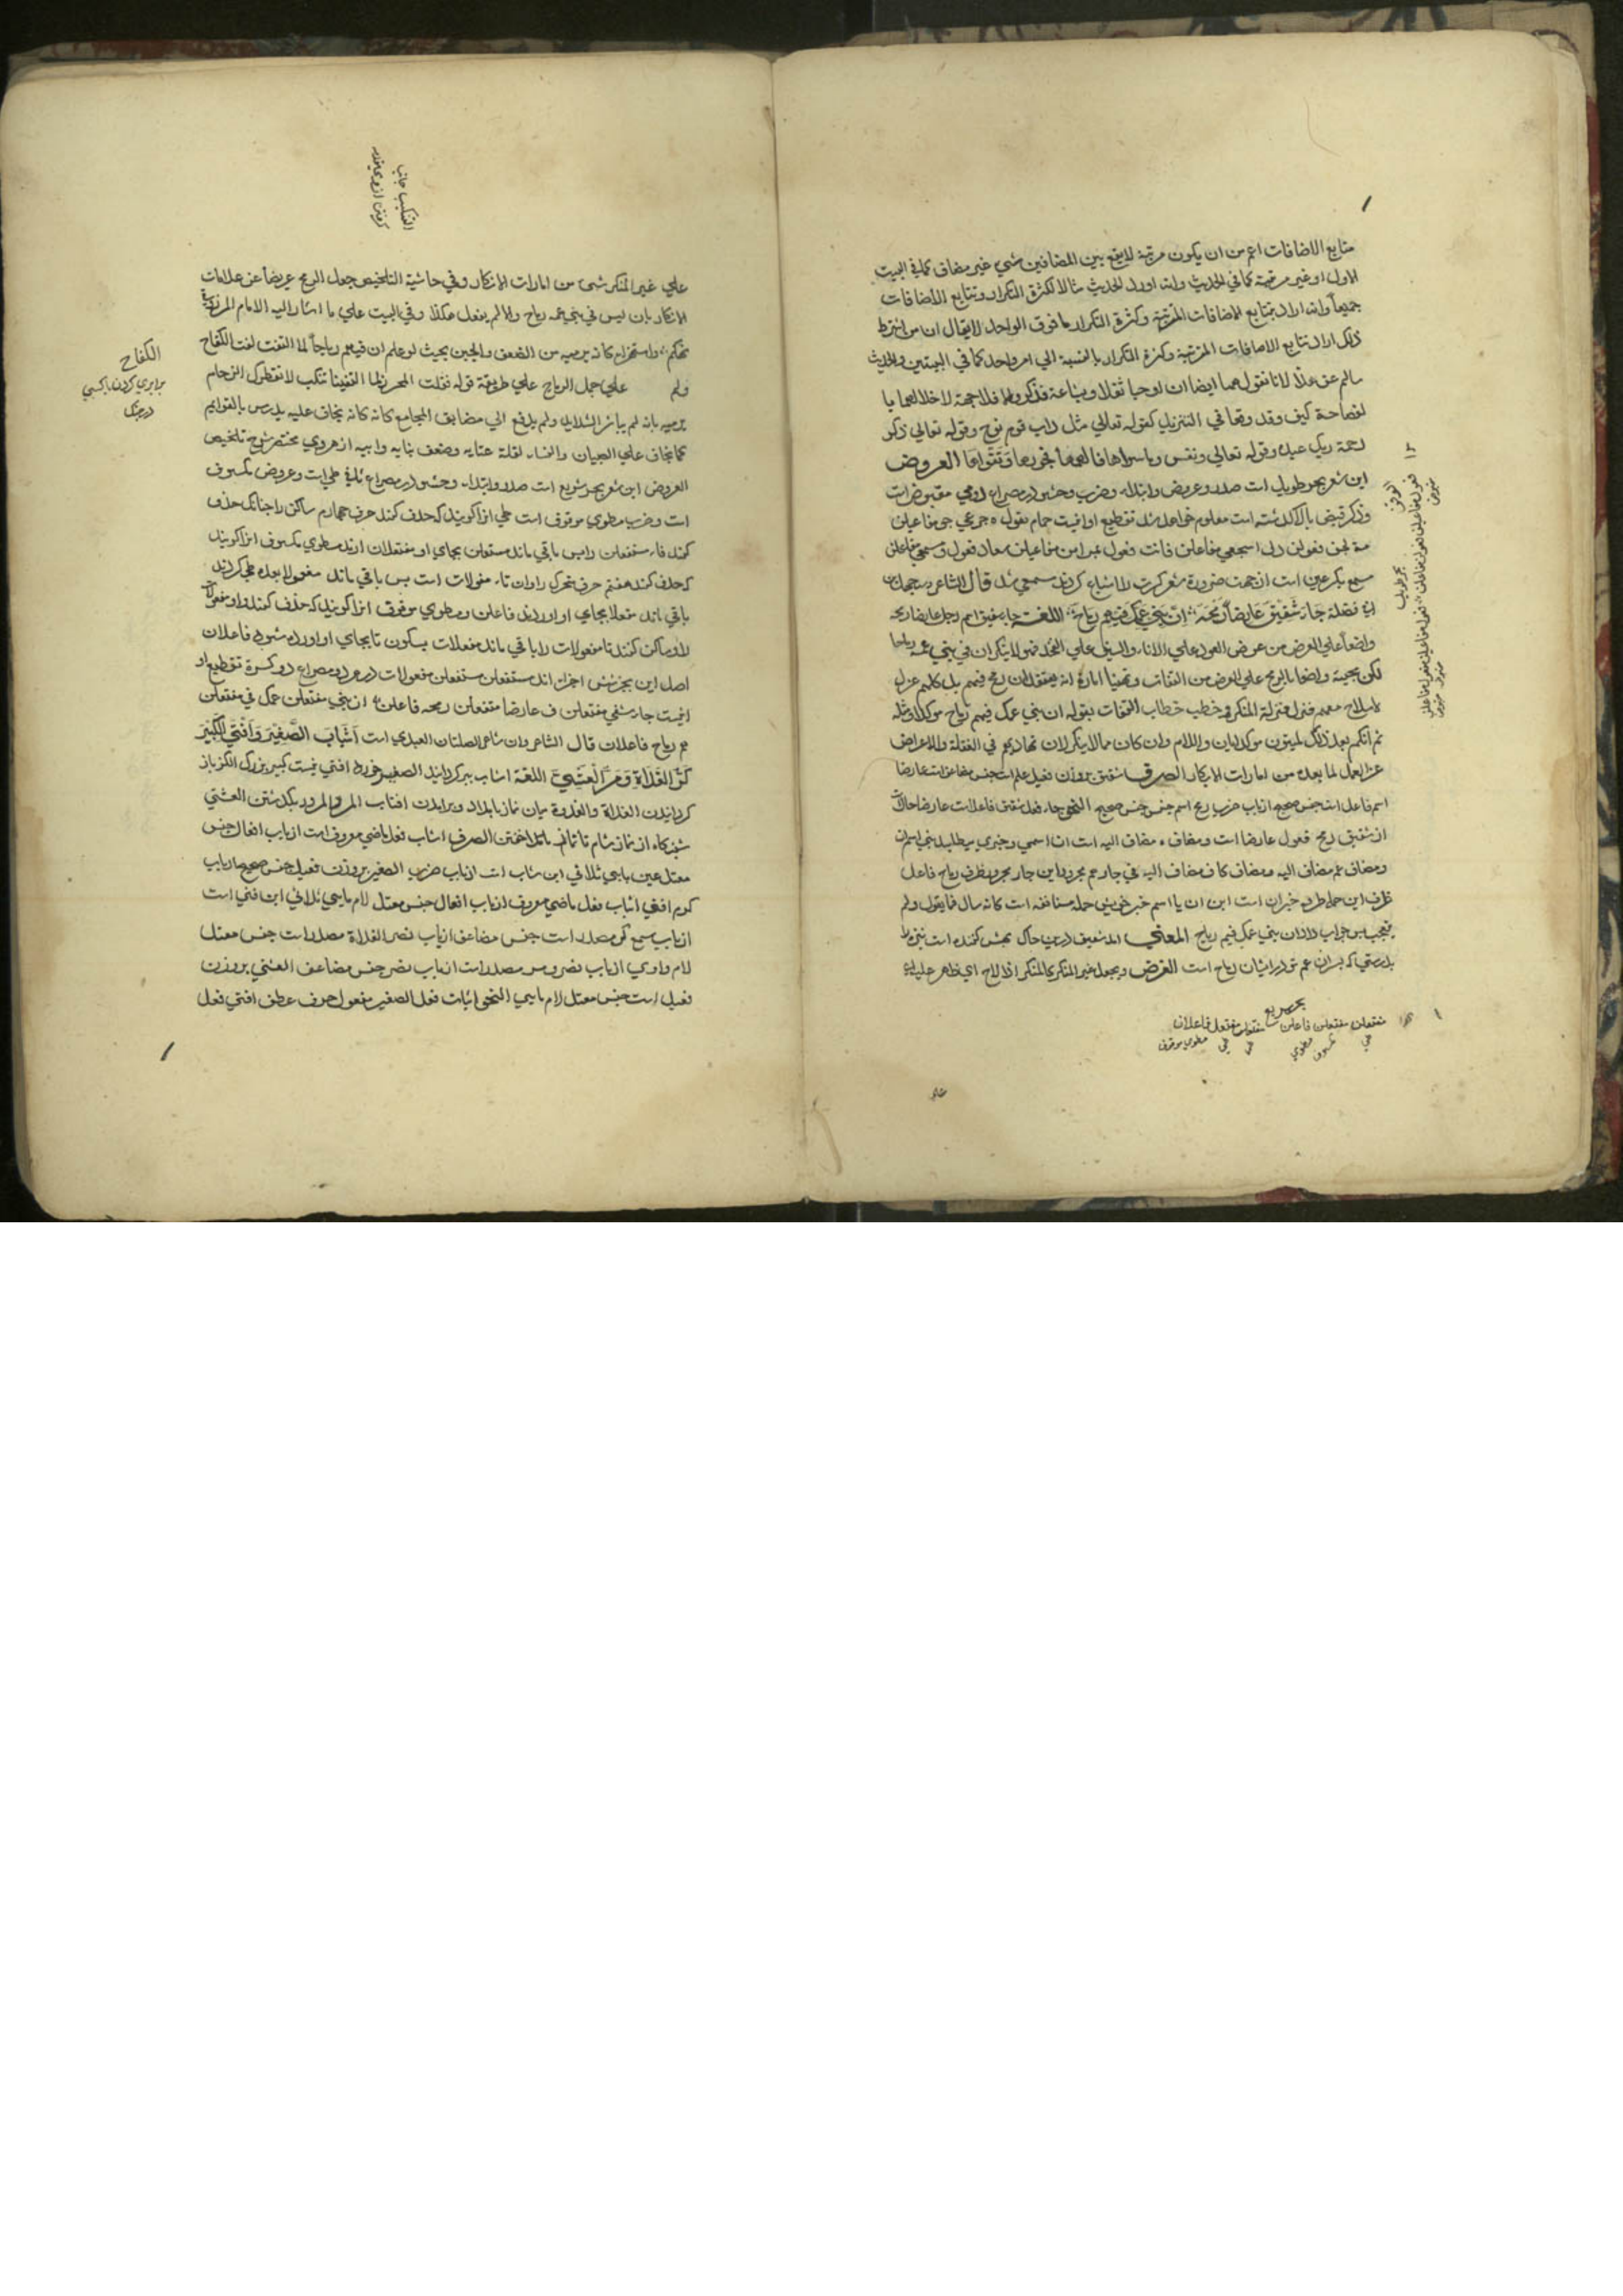 متابع الاضافات اعم من ان يكون مرتبة لا يقع بين المضافين شي غير مضاف كما في البيت
الاول او غير مرتبة كما في الحديث وانه اورد الحديث مثالا لكثرة التكرار وتتابع الاضافات
جميعاً وانه اراد بتتابع الاضافات المرتبة وكثرة التكرار ما فوق الواحد لا يقال ان من اشترط
ذلك اراد تتابع الاضافات المرتبة وكثرة التكرار بالنسبة الي امر واحد كما في البيتين والحديث
سالم عن هذا لانا نقول هما ايضا ان اوجبا ثقلا وبشاعة فذاك والا فلا جهة لاخلالهما با
لفصاحة كيف وقد وقعا في التنزيل كقوله تعالي مثل داب قوم نوح وقوله تعالي ذكر
رحمة ربك عبده وقوله تعالي ونفس وما سواها فالهمها فجورها وتقواها العروض
اين شعر بحر طويل است صدر وعروض وابتداء وضرب وحشو در مصراع دومي مقبوض است
وذكر قبض بالا كذشته است معلوم خواهد شد تقطيع او اينست حمام فعول ه جرعي جي مفاعيلن
مة لجن فعولن دل اسجعي مفاعلن فانت فعول
سمع بكر عين است از جهت ضرورة شعر كسرت را اشباع كردند سمعي شد قال الشاعر
ابن فضلة جَاءَ شَقِيْقٌ عَارِضاً رُمْحَهُ ؞ اِنَّ بَنِيْ عَمِّكَ فِيْهِمْ رِمَاحٌ ؞ اللغت جاء شقيق اسم رجل عارضا رمحه
واضعاً علي العرض من عرض العود علي الاناء والسيف علي الفخذ فهو لا ينكر ان في بني عمه رماحا
لكن مجيئه واضعا بالرمح علي العرض من التفات وتهيا امارة انه يعتقد ان لا رمح فيهم بل كلهم عزل
لا سلاح معهم فنزل منزلة المنكر وخطب خطاب التفات بقوله ان بني عمك فيهم رماح موكدا ومثله
ثم انكم بعد ذلك لميتون موكدا بان واللام وان كان مما لا ينكر لان تماديهم في الغفلة والاعراض
عن العمل لما بعده من امارات الانكار الصرف شقيق بر وزن فعيل علم است جنس مضاعف است عارضا
اسم فاعل است جنس صحيح از باب ضرب رمح اسم جنس جنس صحيح النحو جاء فعل شقيق فاعل است عارضا حال است
از شقيق رمح مفعول عارضا است ومضاف ه مضاف اليه است ان اسمي وخبري مي طلبد بني اسم ان
ومضاف عم مضاف اليه ومضاف كاف مضاف اليه في جار هم مجرور اين جار مجرور ظرف رماح فاعل
ظرف اين جمله ظرفيه خبر ان است
پس جواب داد ان بني عمك فيهم رماح المعني امد شقيق درين حال كه پيش كننده است نيزه را
بدرستي كه پسران عم تو در ايشان رماح است الغرض ويجعل غير المنكر كالمنكر اذا لاح اي ظاهر عليه
بحر سريع
مفتعلن مفتعلن فاعلن مفتعلن مفتعلن فاعلان
طي مطوي مكسوف طي طي مطوي موقوف
بحر طويل
علي
علي غير المنكر شي من امارات الانكار وفي حاشية التلخيص جعل الرمح عريضاً عن علامات
الانكار بان ليس في بني عمه رماح والا لم يفعل هكذا وفي البيت علي ما اشار اليه الامام المرزوقي
تهكم واستهزاء كانه يرميه من الضعف والجبن بحيث لو علم ان فيهم رماحاً لما التفت لفت الكفاح
ولم علي حمل الرماح علي طريقة قوله فقلت لمحرز لما التقينا تنكب لا يقطرك الزحام
يرميه بانه لم يباشر الشدايد ولم يدفع الي مضايق المجامع كانه يخاف عليه يدرس بالقوايم
كما يخاف علي الصبيان والنساء لقلة عنايه وضعف بنايه وابيه از هروي مختصر شرح تلخيص
العروض اين شعر بحر سريع است صدر وابتداء وحشو در مصراع ثاني طي است وعروض مكسوف
است وضرب مطوي موقوف است طي انرا كويند كه حذف كنند حرف چهارم ساكن را چنانكه حذف
كنند فاء مستفعلن را پس باقي ماند مستعلن بجاي او مفتعلن ارند مطوي مكسوف انرا كويند
كه حذف كنند هفتم حرف متحرك را وان تاء مفعولات است پس باقي ماند مفعولا بعده طي كردند
باقي ماند مفعلا بجاي او اوردند فاعلن ومطوي موقوف انرا كويند كه حذف كنند واو مفعولات
را وساكن كنند تا مفعولات را باقي ماند مفعلات بسكون تا بجاي او اورده شود فاعلان
اصل اين بحر شش اجزا اند مستفعلن مستفعلن مفعولات در هر دو مصراع دو كرة تقطيع او
اينست جاء شقي مفتعلن ق عارضا مفتعلن رمحه فاعلن ان بني مفتعلن عمك في مفتعلن
هم رماح فاعلان قال الشاعر وان شاعر الصلتان العبدي است اَشَابَ الصَّغِيْرَ وَاَفْنَي الْكَبِيْرَ
كَرُّ الغَدَاةِ وَمَرُّ الْعَشِيِّ اللغة اشاب پير كردانيد الصغير خورد افني نيست كبير بزرك الكر باز
كردانيدن الغداة والغدوة ميان نماز بامداد وبرامدن افتاب المر والمرور بكذشتن العشي
شبانكاه از نماز شام تا نماز خفتن الصرف اشاب فعل ماضي معروف است از باب افعال جنس
معتل عين يايي ثلاثي اين شاب است از باب ضرب الصغير بر وزن فعيل جنس صحيح از باب
كرم افني اشاب فعل ماضي معروف از باب افعال جنس معتل لام يايي ثلاثي اين فني است
از باب سمع كر مصدر است جنس مضاعف از باب نصر الغداة مصدر است جنس معتل
لام واوي از باب نصر ومر مصدر است از باب نصر جنس مضاعف العشي بر وزن
فعيل است جنس معتل لام يايي النحو اشاب فعل الصغير مفعول حرف عطف افني فعل
الكفاح
برابري كردن با كسي
در جنك
التنكب جانب
كرفتن از